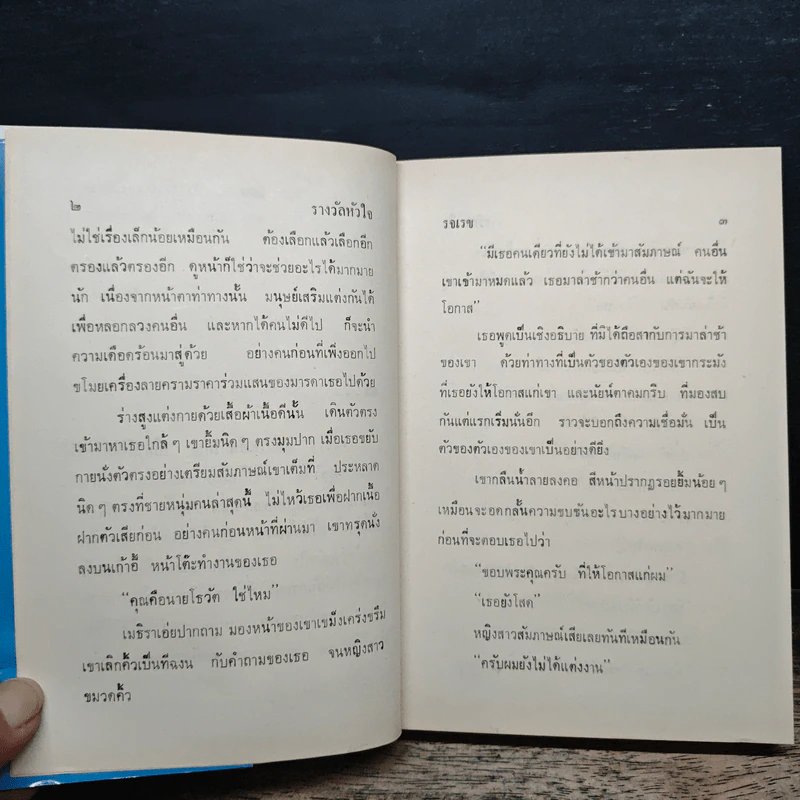 ๒ รางวัลหัวใจ
ไม่ใช่เรื่องเล็กน้อยเหมือนกัน ต้องเลือกแล้วเลือกอีก
ตรองแล้วตรองอีก ดูหน้าก็ใช่ว่าจะช่วยอะไรได้มากมาย
นัก เนื่องจากหน้าตาท่าทางนั้น มนุษย์เสริมแต่งกันได้
เพื่อหลอกลวงคนอื่น และหากได้คนไม่ดีไป ก็จะนำ
ความเดือดร้อนมาสู่ด้วย อย่างคนก่อนที่เพิ่งออกไป
ขโมยเครื่องลายครามราคาร่วมแสนของมารดาเธอไปด้วย
ร่างสูงแต่งกายด้วยเสื้อผ้าเนื้อดีนั้น เดินตัวตรง
เข้ามาหาเธอใกล้ๆ เขายิ้มนิดๆ ตรงมุมปาก เมื่อเธอขยับ
กายนั่งตัวตรงอย่างเตรียมสัมภาษณ์เขาเต็มที่ ประหลาด
นิดๆ ตรงที่ชายหนุ่มคนล่าสุดนี้ ไม่ไหว้เธอเพื่อฝากเนื้อ
ฝากตัวเสียก่อน อย่างคนก่อนหน้าที่ผ่านมา เขาทรุดนั่ง
ลงบนเก้าอี้ หน้าโต๊ะทำงานของเธอ
“คุณคือนายโธวัต ใช่ไหม”
เมธิราเอ่ยปากถาม มองหน้าของเขาเขม็งเคร่งขรึม
เขาเลิกคิ้วเป็นทีฉงน กับคำถามของเธอ จนหญิงสาว
ขมวดคิ้ว
รจเรข ๓
“มีเธอคนเดียวที่ยังไม่ได้เข้ามาสัมภาษณ์ คนอื่น
เขาเข้ามาหมดแล้ว เธอมาล่าช้ากว่าคนอื่น แต่ฉันจะให้
โอกาส”
เธอพูดเป็นเชิงอธิบาย ที่มิได้ถือสากับการมาล่าช้า
ของเขา ด้วยท่าทางที่เป็นตัวของตัวเองของเขากระมัง
ที่เธอยังให้โอกาสแก่เขา และนัยน์ตาคมกริบ ที่มองสบ
กันแต่แรกเริ่มนั่นอีก ราวจะบอกถึงความเชื่อมั่น เป็น
ตัวของตัวเองของเขาเป็นอย่างดียิ่ง
เขากลืนน้ำลายลงคอ สีหน้าปรากฏรอยยิ้มน้อยๆ
เหมือนจะอดกลั้นความขบขันอะไรบางอย่างไว้มากมาย
ก่อนที่จะตอบเธอไปว่า
“ขอบพระคุณครับ ที่ให้โอกาสแก่ผม”
“เธอยังโสด”
หญิงสาวสัมภาษณ์เสียเลยทันทีเหมือนกัน
“ครับผมยังไม่ได้แต่งงาน”